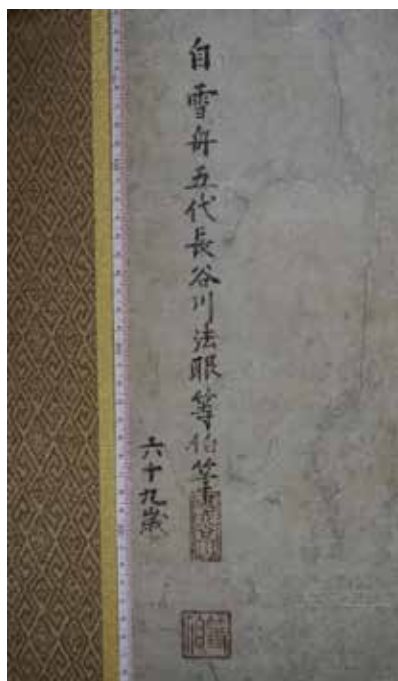 自雪舟五代長谷川法眼等伯筆
六十九歳
等伯